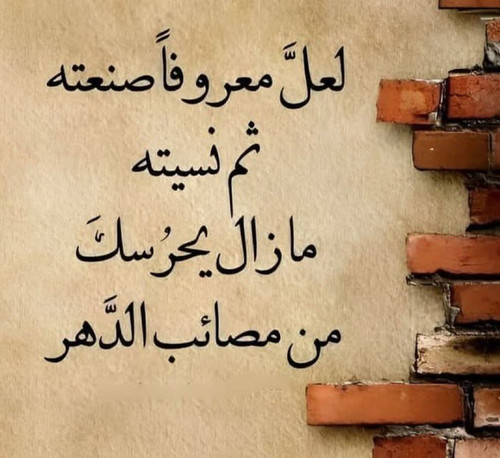 لعلَّ معروفاً صنعته
ثم نسيته
مازال يحرُسكَ
من مصائب الدَّهر